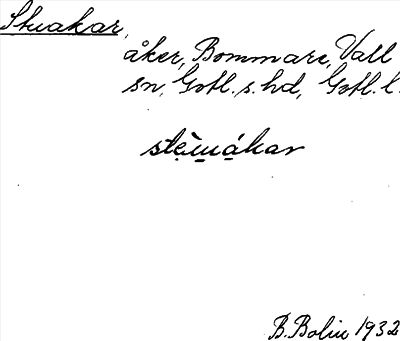 Stuakar,
åker, Bommare, Vall
sn, Gotl. s. hd, Gotl. l.
B. Bolin 1932